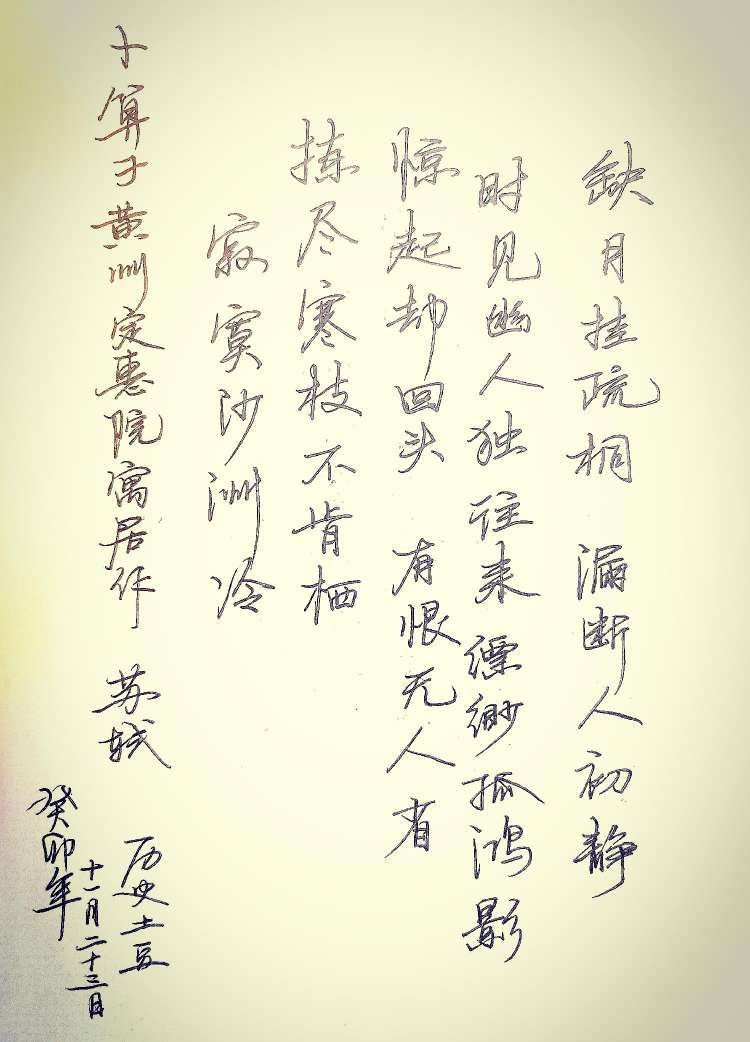 缺月挂疏桐 漏断人初静
时见幽人独往来 缥缈孤鸿影
惊起却回头 有恨无人省
拣尽寒枝不肯栖
寂寞沙洲冷
卜算子黄州定惠院寓居作 苏轼
历史土豆
十一月二十三日
癸卯年